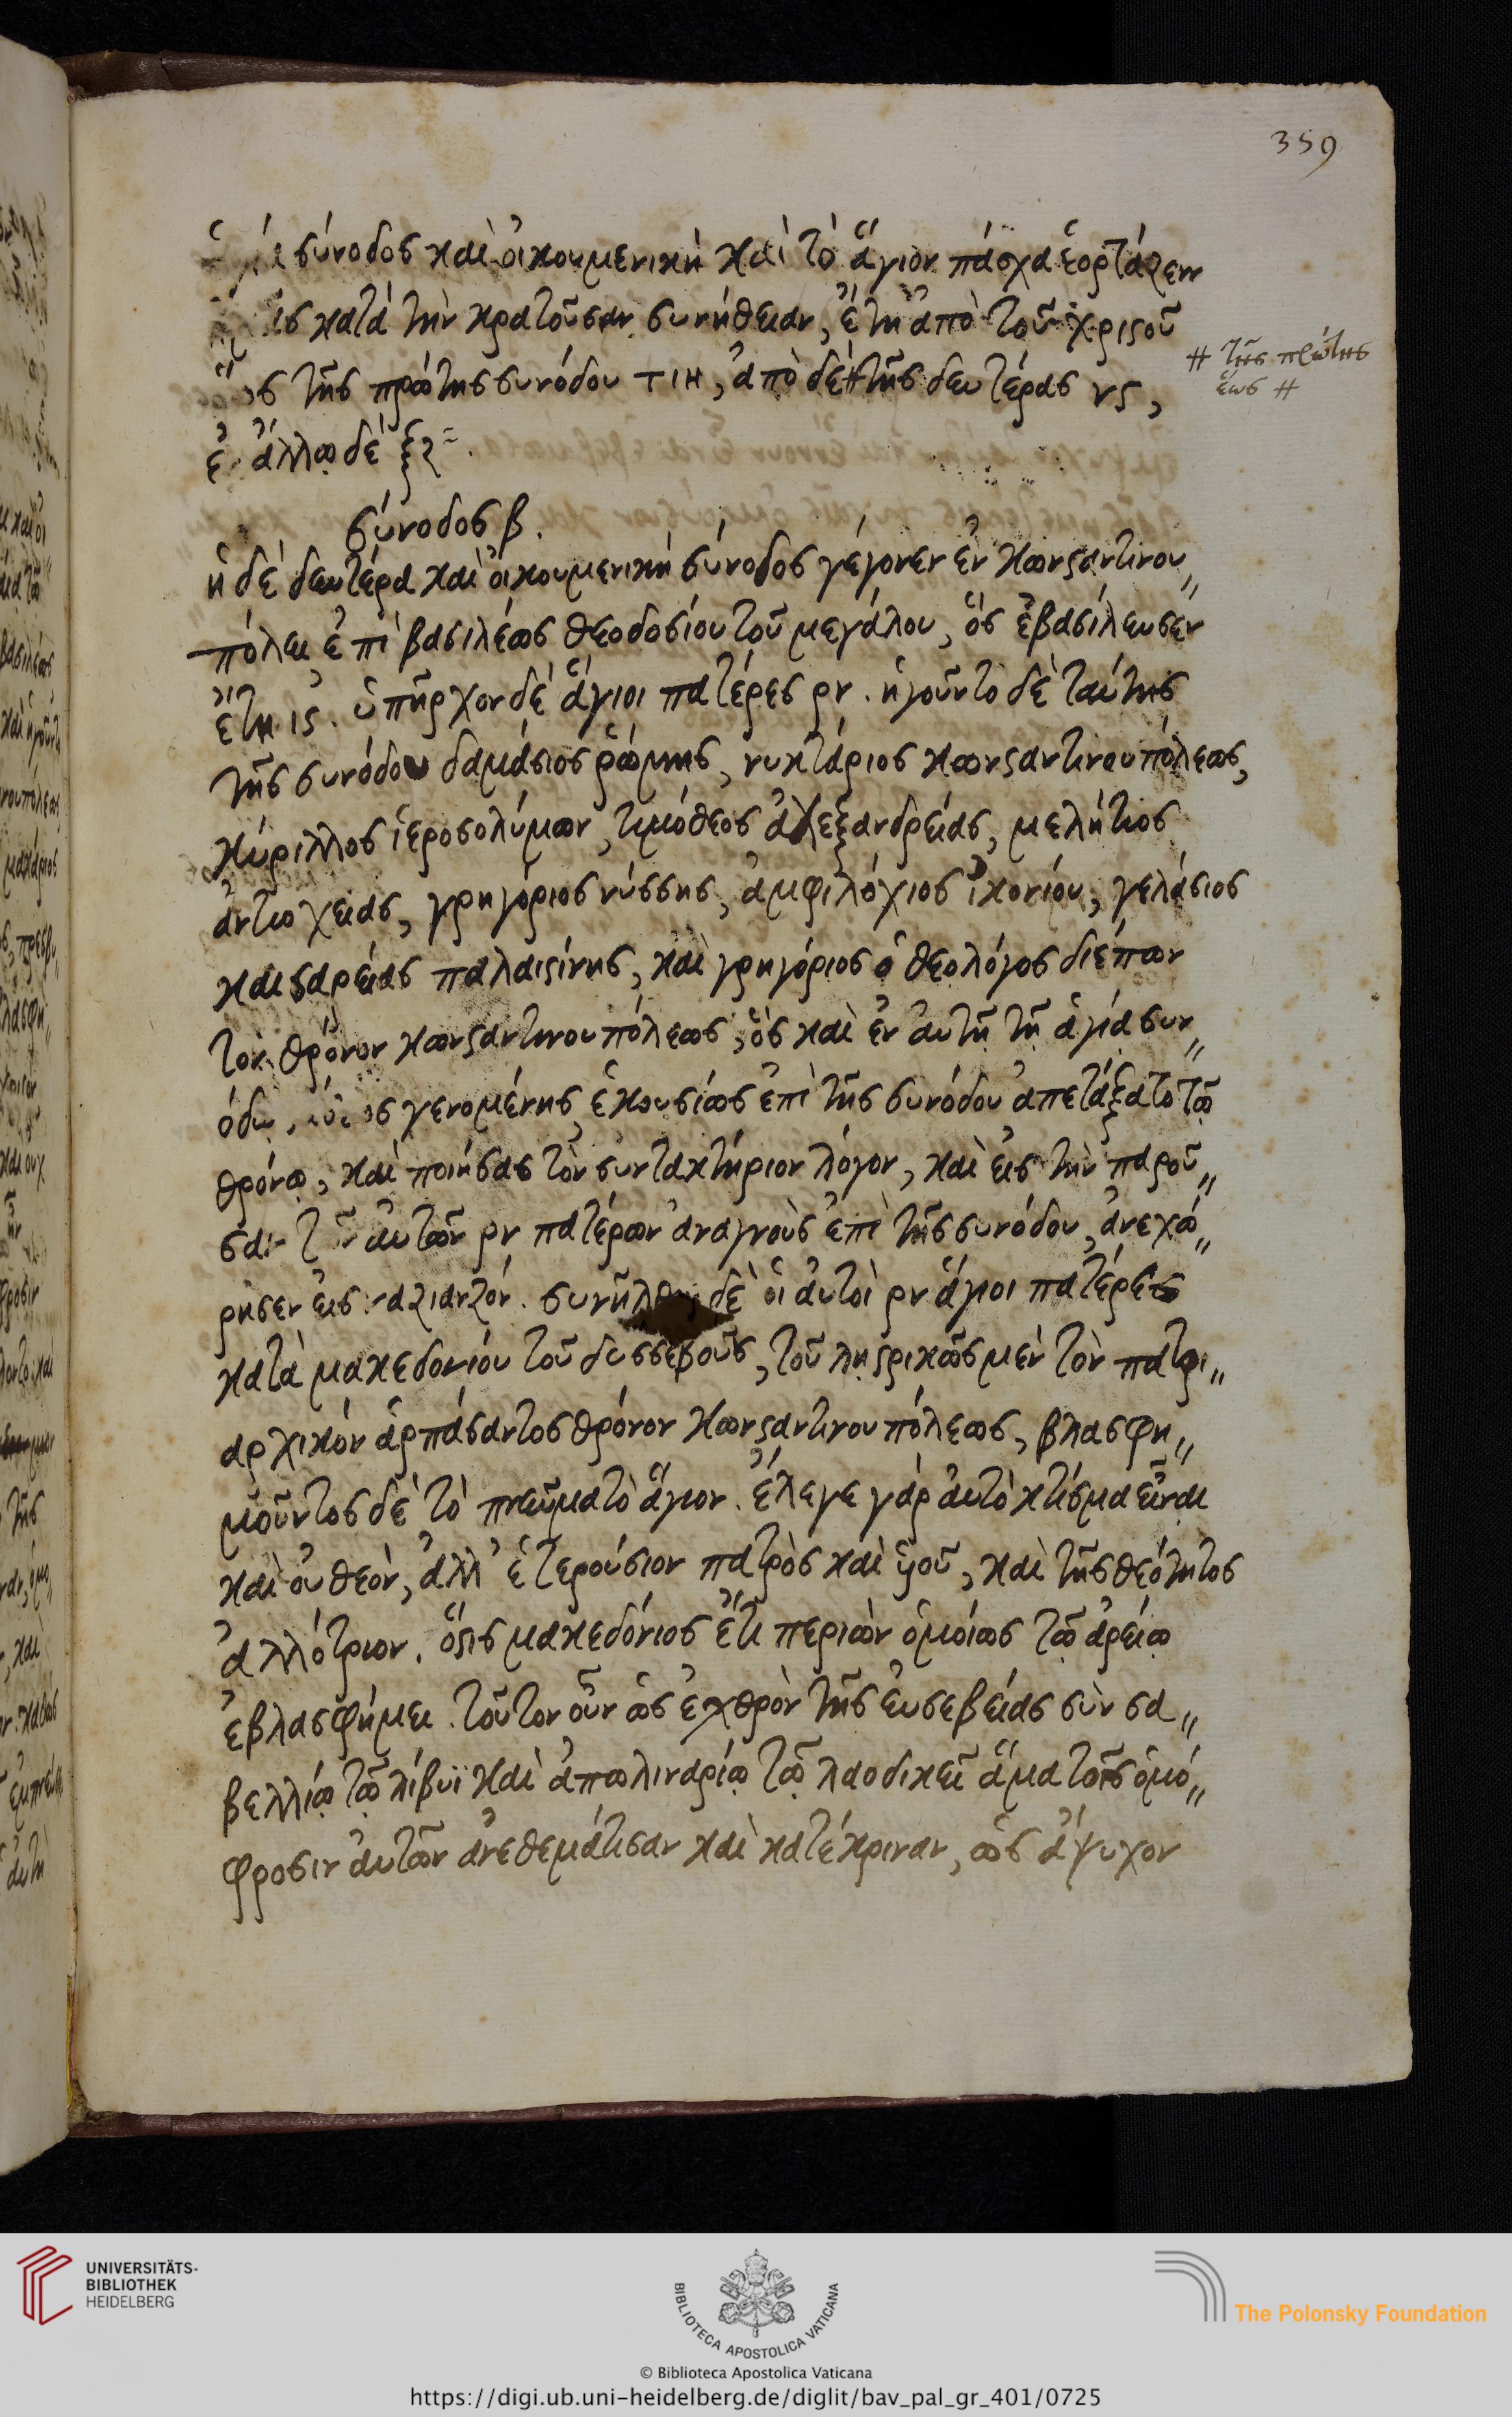 359
σύνοδος καὶ οἰκουμενικὴ καὶ τὸ ἅγιον πάσχα ἑορτάζειν
κατὰ τὴν κρατοῦσαν συνήθειαν, ἔτη ἀπὸ τοῦ χριστοῦ
τῆς πρώτης συνόδου τιη, ἀπὸ δὲ # τῆς δευτέρας νς,
# τῆς πρώτης
ἕως #
ἄλλῳ δὲ
σύνοδος β.
ἡ δὲ δευτέρα καὶ οἰκουμενικὴ σύνοδος γέγονεν ἐν κωνσαντινου〃
πόλει ἐπὶ βασιλέως θεοδοσίου τοῦ μεγάλου, ὃς ἐβασίλευσεν
ἔτη ις. ὑπῆρχον δὲ ἅγιοι πατέρες ρν. ἡγοῦντο δὲ ταύτης
τῆς συνόδου δαμάσιος ῥώμης, νυκτάριος κωνσαντινουπόλεως,
κύριλλος ἱεροσολύμων, τιμόθεος ἀλεξανδρείας, μελήτιος
ἀντιοχείας, γρηγόριος νύσσης, ἀμφιλόχιος ἰκονίου, γελάσιος
καισαρείας παλαιστίνης, καὶ γρηγόριος ὁ θεολόγος διέπων
τὸν θρόνον κωνσαντινουπόλεως, ὃς καὶ ἐν αὐτῇ τῇ ἁγίᾳ συν〃
γενομένης ἑκουσίως ἐπὶ τῆς συνόδου ἀπετάξατο τῷ
θρόνῳ, καὶ ποιήσας τὸν συντακτήριον λόγον, καὶ εἰς τὴν παρου〃
αὐτῶν ρν πατέρων ἀναγνοὺς ἐπὶ τῆς συνόδου, ἀνεχώ〃
ρησεν εἰς ναζιανζόν. δὲ οἱ αὐτοὶ ρν ἅγιοι πατέρες
κατὰ μακεδονίου τοῦ δυσσεβοῦς, τοῦ ληστρικῶς μὲν τὸν πατρι〃
αρχικὸν ἁρπάσαντος θρόνον κωνσαντινουπόλεως, βλασφη〃
μοῦντος δὲ τὸ πνεῦμα τὸ ἅγιον. ἔλεγε γὰρ αὐτὸ κτίσμα εἶναι
καὶ οὐ θεὸν, ἀλλ' ἑτερούσιον πατρὸς καὶ υἱοῦ, καὶ τῆς θεότητος
ἀλλότριον. ὅστις μακεδόνιος ἔτι περιὼν ὁμοίως τῷ ἀρείῳ
ἐβλασφήμει. τοῦτον οὖν ὡς ἐχθρὸν τῆς εὐσεβείας σὺν σα〃
βελλίῳ τῷ λίβυϊ καὶ ἀπωλιναρίῳ τῷ λαοδικεῖ ἅμα τοῖς ὁμό〃
φροσιν αὐτῶν ἀνεθεμάτισαν καὶ κατέκριναν, ὡς ἄψυχον
UNIVERSITÄTS-
BIBLIOTHEK
HEIDELBERG
BIBLIOTECA APOSTOLICA VATICANA
The Polonsky Foundation
© Biblioteca Apostolica Vaticana
https://digi.ub.uni-heidelberg.de/diglit/bav_pal_gr_401/0725